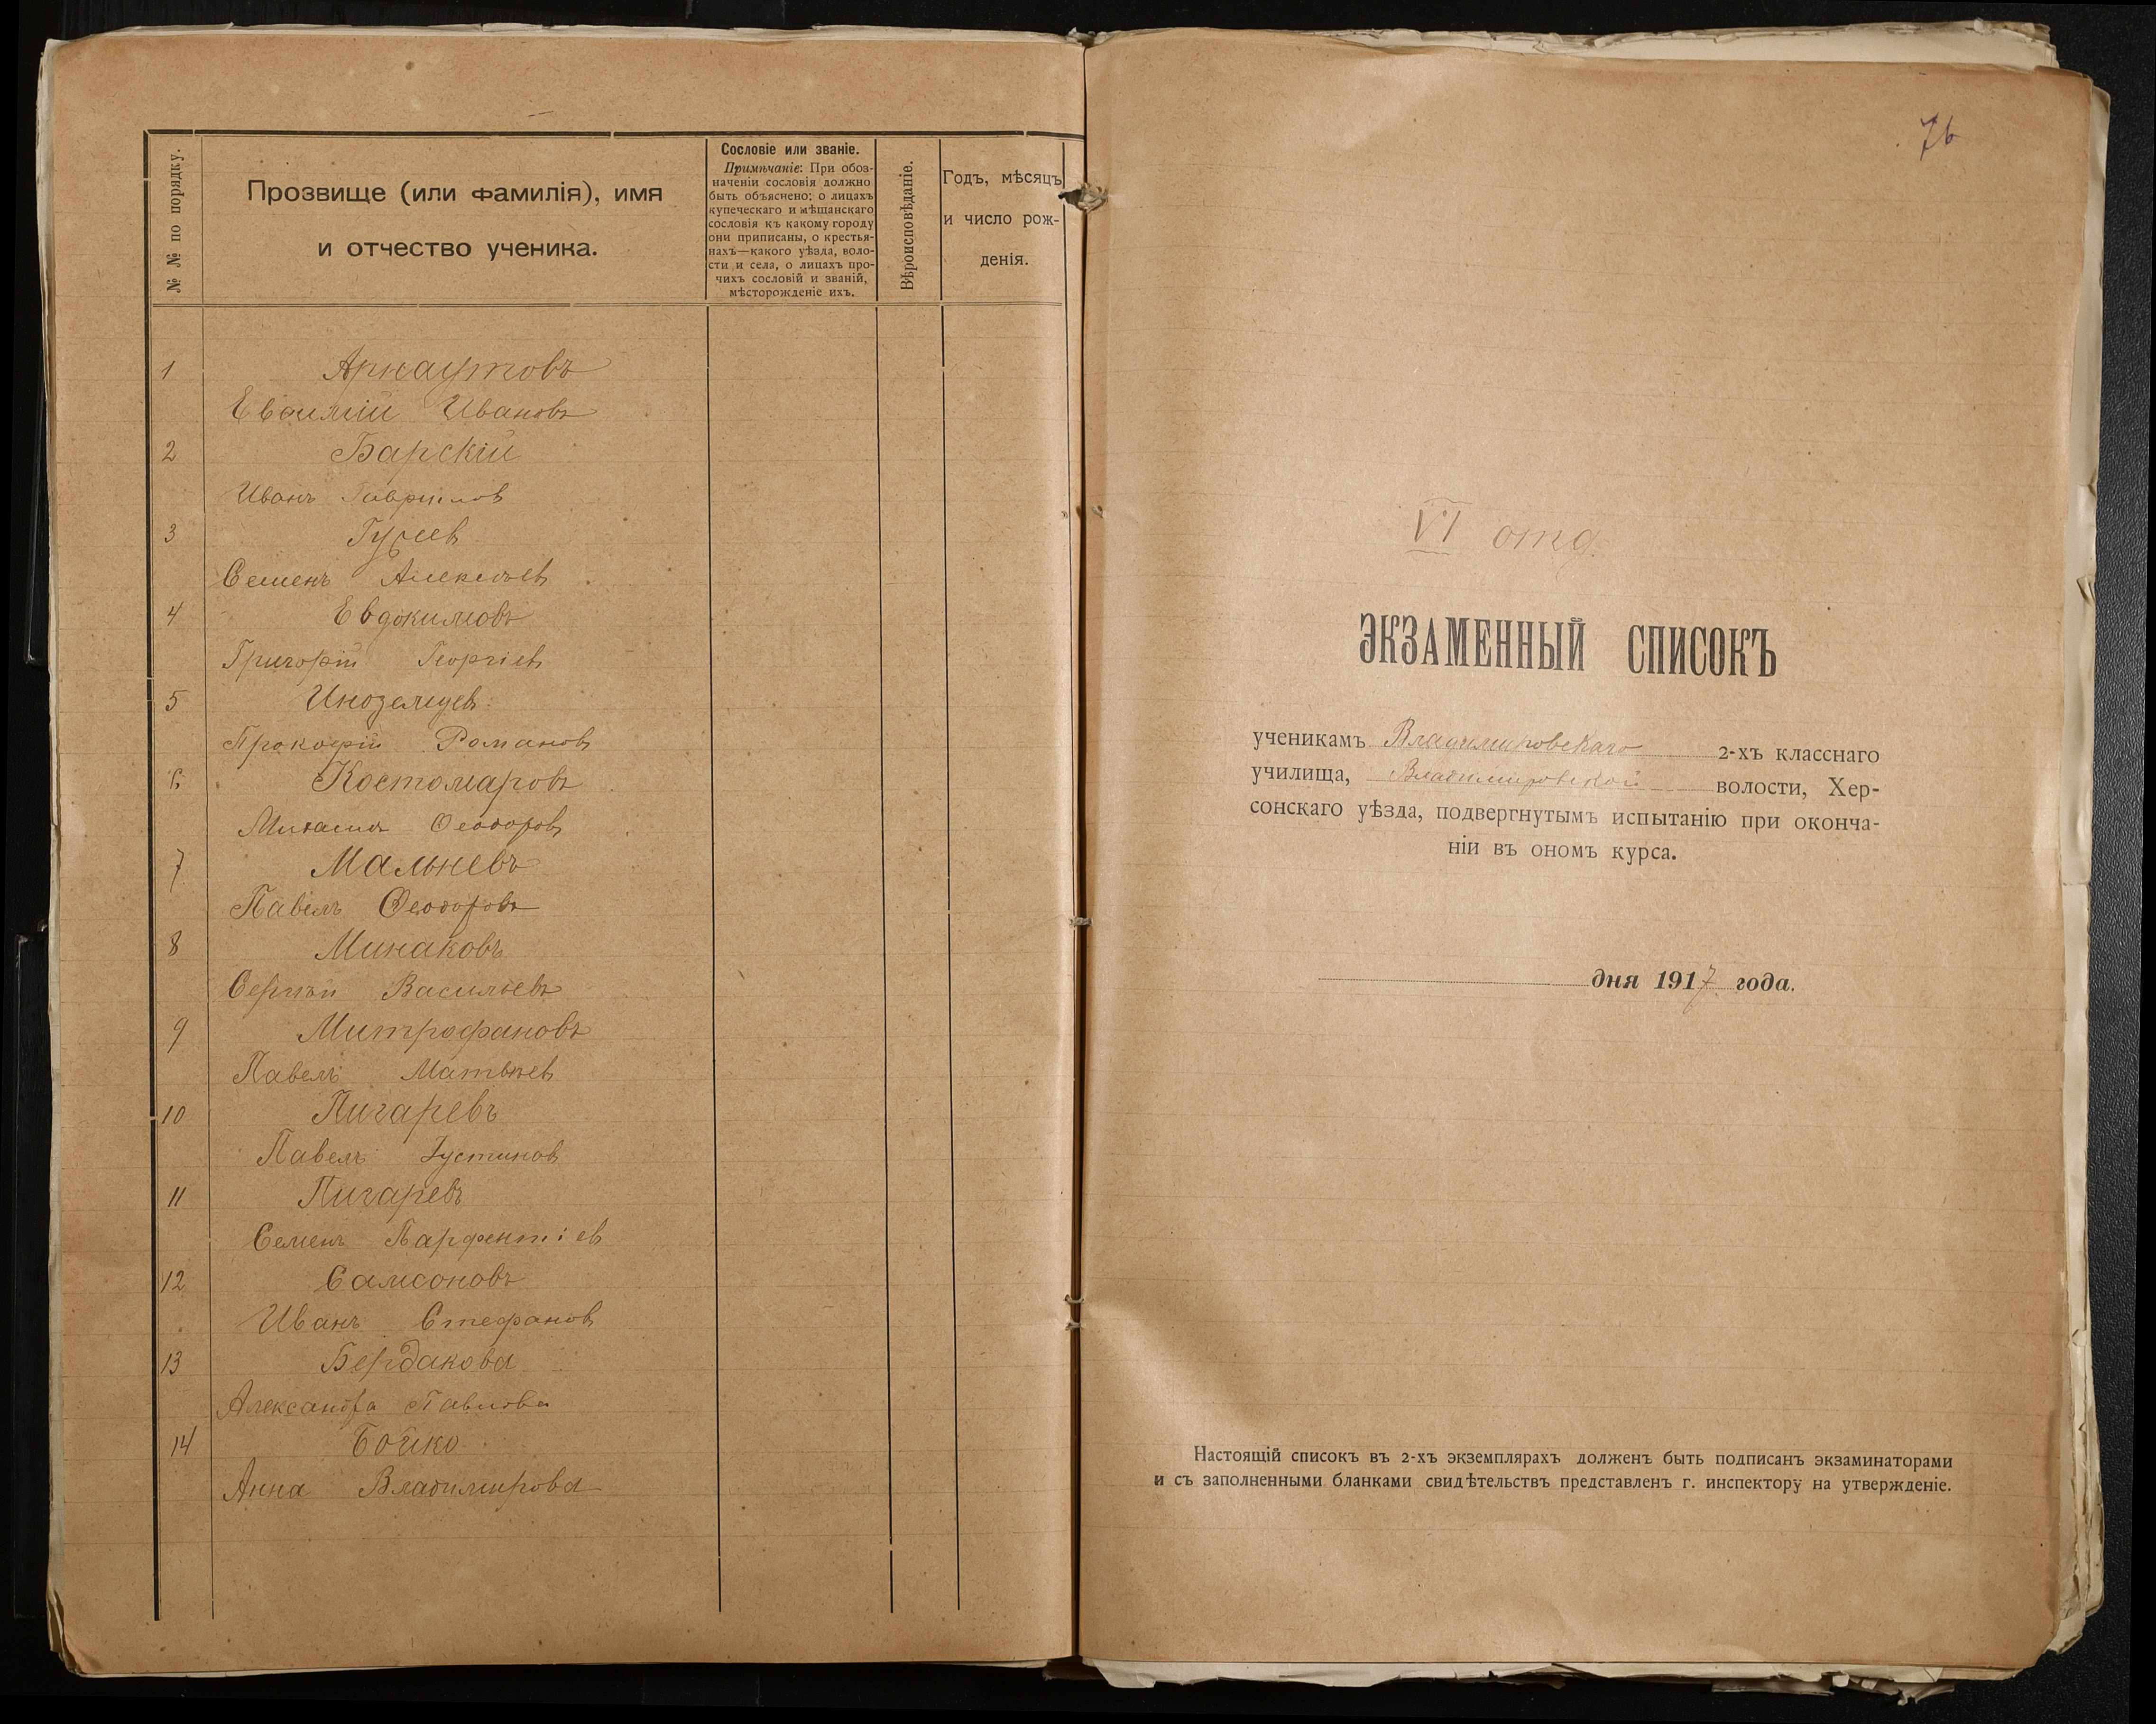 № № по порядку.
Прозвище (или фамилія), имя
и отчество ученика.
Сословіе или званіе.
Примѣчаніе: При обоз-
наченіи сословія должно
быть объяснено: о лицахъ
купеческаго и мѣщанскаго
сословія къ какому городу
они приписаны, о крестья-
нахъ—какого уѣзда, воло-
сти и села, о лицахъ про-
чихъ сословій и званій,
мѣсторожденіе ихъ.
Вѣроисповѣданіе.
Годъ, мѣсяцъ
и число рож-
денія.
1 Арнаутовъ
Евѳимій Ивановъ
2 Барскій
Иванъ Гаврилов
3 Гусев
Семенъ Алексѣев
4 Евдокимовъ
Григорій Георгіев
5 Иноземцев
Прокофій Романов
6 Костомаровъ
Михаилъ Ѳеодоров
7 Мальневъ
Павелъ Ѳеодоровъ
8 Минаковъ
Сергѣй Васильевъ
9 Митрофановъ
Павелъ Матвѣев
10 Пигаревъ
Павелъ Іустинов
11 Пигаревъ
Семенъ Парфентіев
12 Самсоновъ
Иванъ Стефанов
13 Бердакова
Александра Павлова
14 Бойко
Анна Владимирова
76
VI отд.
ЭКЗАМЕННЫЙ СПИСОКЪ
ученикамъ Владимировскаго 2-хъ класснаго
училища, Владимировской волости, Хер-
сонскаго уѣзда, подвергнутымъ испытанію при оконча-
ніи въ ономъ курса.
дня 1917 года.
Настоящій списокъ въ 2-хъ экземплярахъ долженъ быть подписанъ экзаминаторами
и съ заполненными бланками свидѣтельствъ представленъ г. инспектору на утвержденіе.